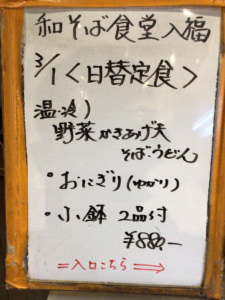 和そば食堂入福
3/1<日替定食>
温・冷)
野菜かきあげ天
そば・うどん
・おにぎり(ゆかり)
・小鉢 2品付
¥880-
=入口こちら⇒